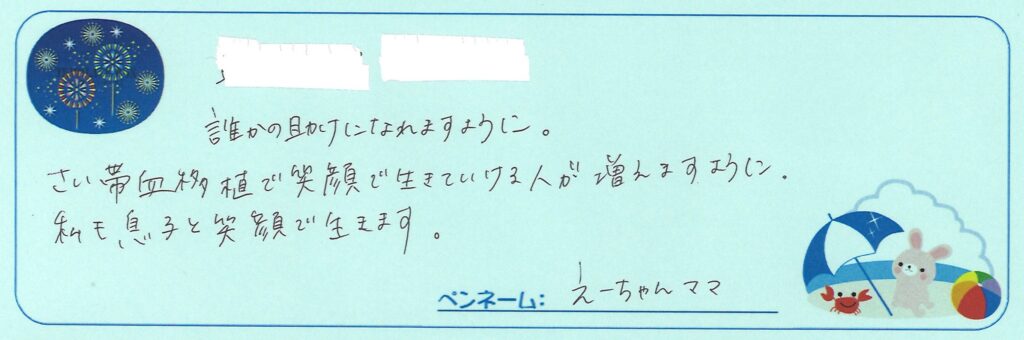 誰かの助けになれますように。
さい帯血移植で笑顔で生きていける人が増えますように。
私も息子と笑顔で生きます。
ペンネーム: えーちゃんママ